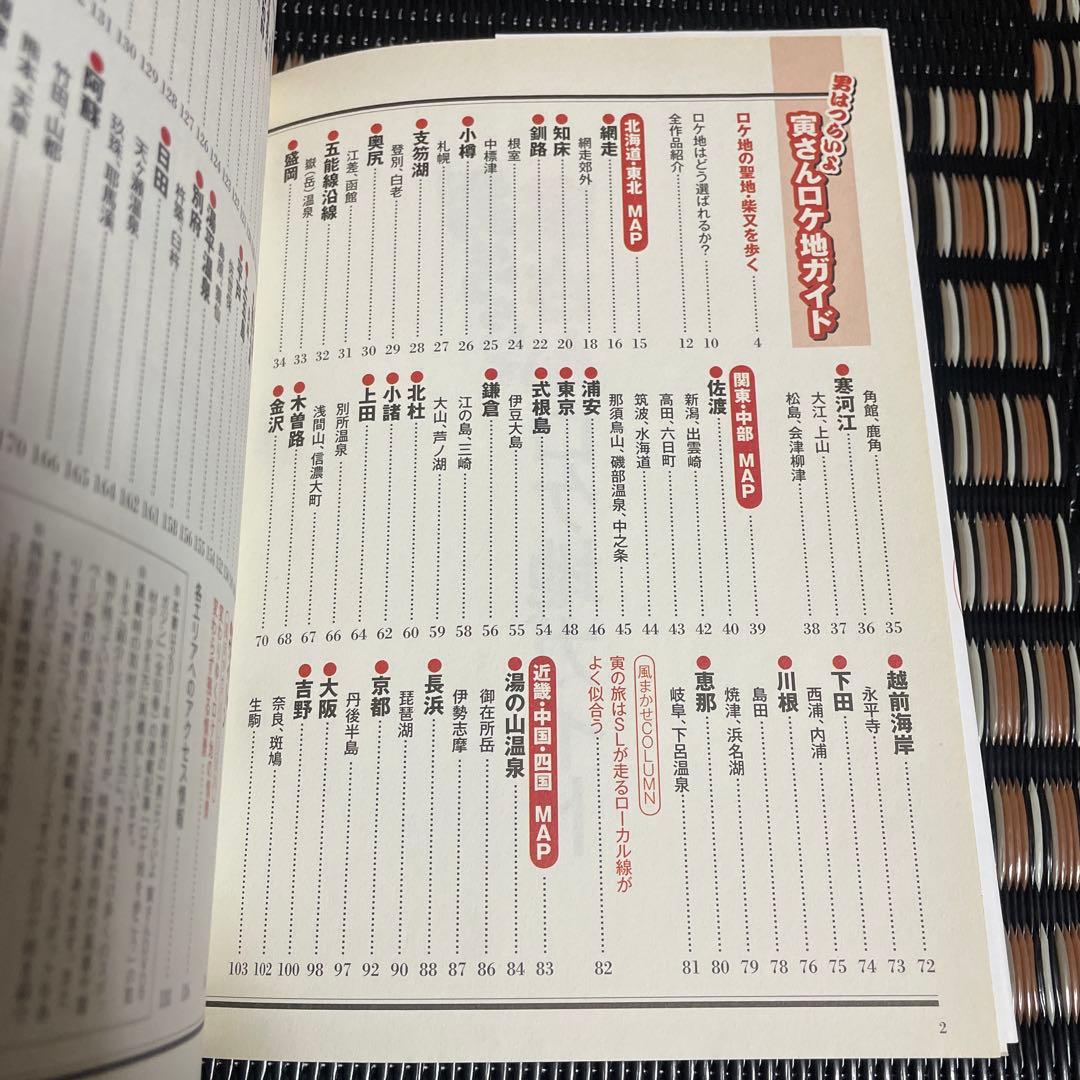 男はつらいよ
寅さんロケ地ガイド
ロケ地の聖地・柴又を歩く 4
ロケ地はどう選ばれるか? 10
全作品紹介 12
北海道・東北 MAP 15
●網走 16
網走郊外 18
●知床 20
●釧路 22
根室 24
中標津 25
●小樽 26
札幌 27
●支笏湖 28
登別、白老 29
●奥尻 30
江差、函館 31
●五能線沿線 32
嶽(岳)温泉 33
●盛岡 34
角館、鹿角 35
●寒河江 36
大江、上山 37
松島、会津柳津 38
関東・中部 MAP 39
●佐渡 40
新潟、出雲崎 42
高田、六日町 43
筑波、水海道 44
那須烏山、磯部温泉、中之条 45
●浦安 46
●東京 48
●式根島 54
伊豆大島 55
●鎌倉 56
江の島、三崎 58
大山、芦ノ湖 59
●北杜 60
●小諸 62
●上田 64
別所温泉 66
浅間山、信濃大町 67
●木曽路 68
●金沢 70
●越前海岸 72
永平寺 73
●下田 74
西浦、内浦 75
●川根 76
島田 78
焼津、浜名湖 79
●恵那 80
岐阜、下呂温泉 81
風まかせCOLUMN
寅の旅はSLが走るローカル線が
よく似合う 82
近畿・中国・四国 MAP 83
●湯の山温泉 84
御在所岳 86
伊勢志摩 87
●長浜 88
琵琶湖 90
●京都 92
丹後半島 97
●大阪 98
●吉野 100
奈良、斑鳩 102
生駒 103
2
●別府
●湯平温泉
杵築、臼杵
●日田
天ヶ瀬温泉
玖珠、耶馬溪
●阿蘇
竹田、山都
熊本、天草
各エリアへのアクセス情報